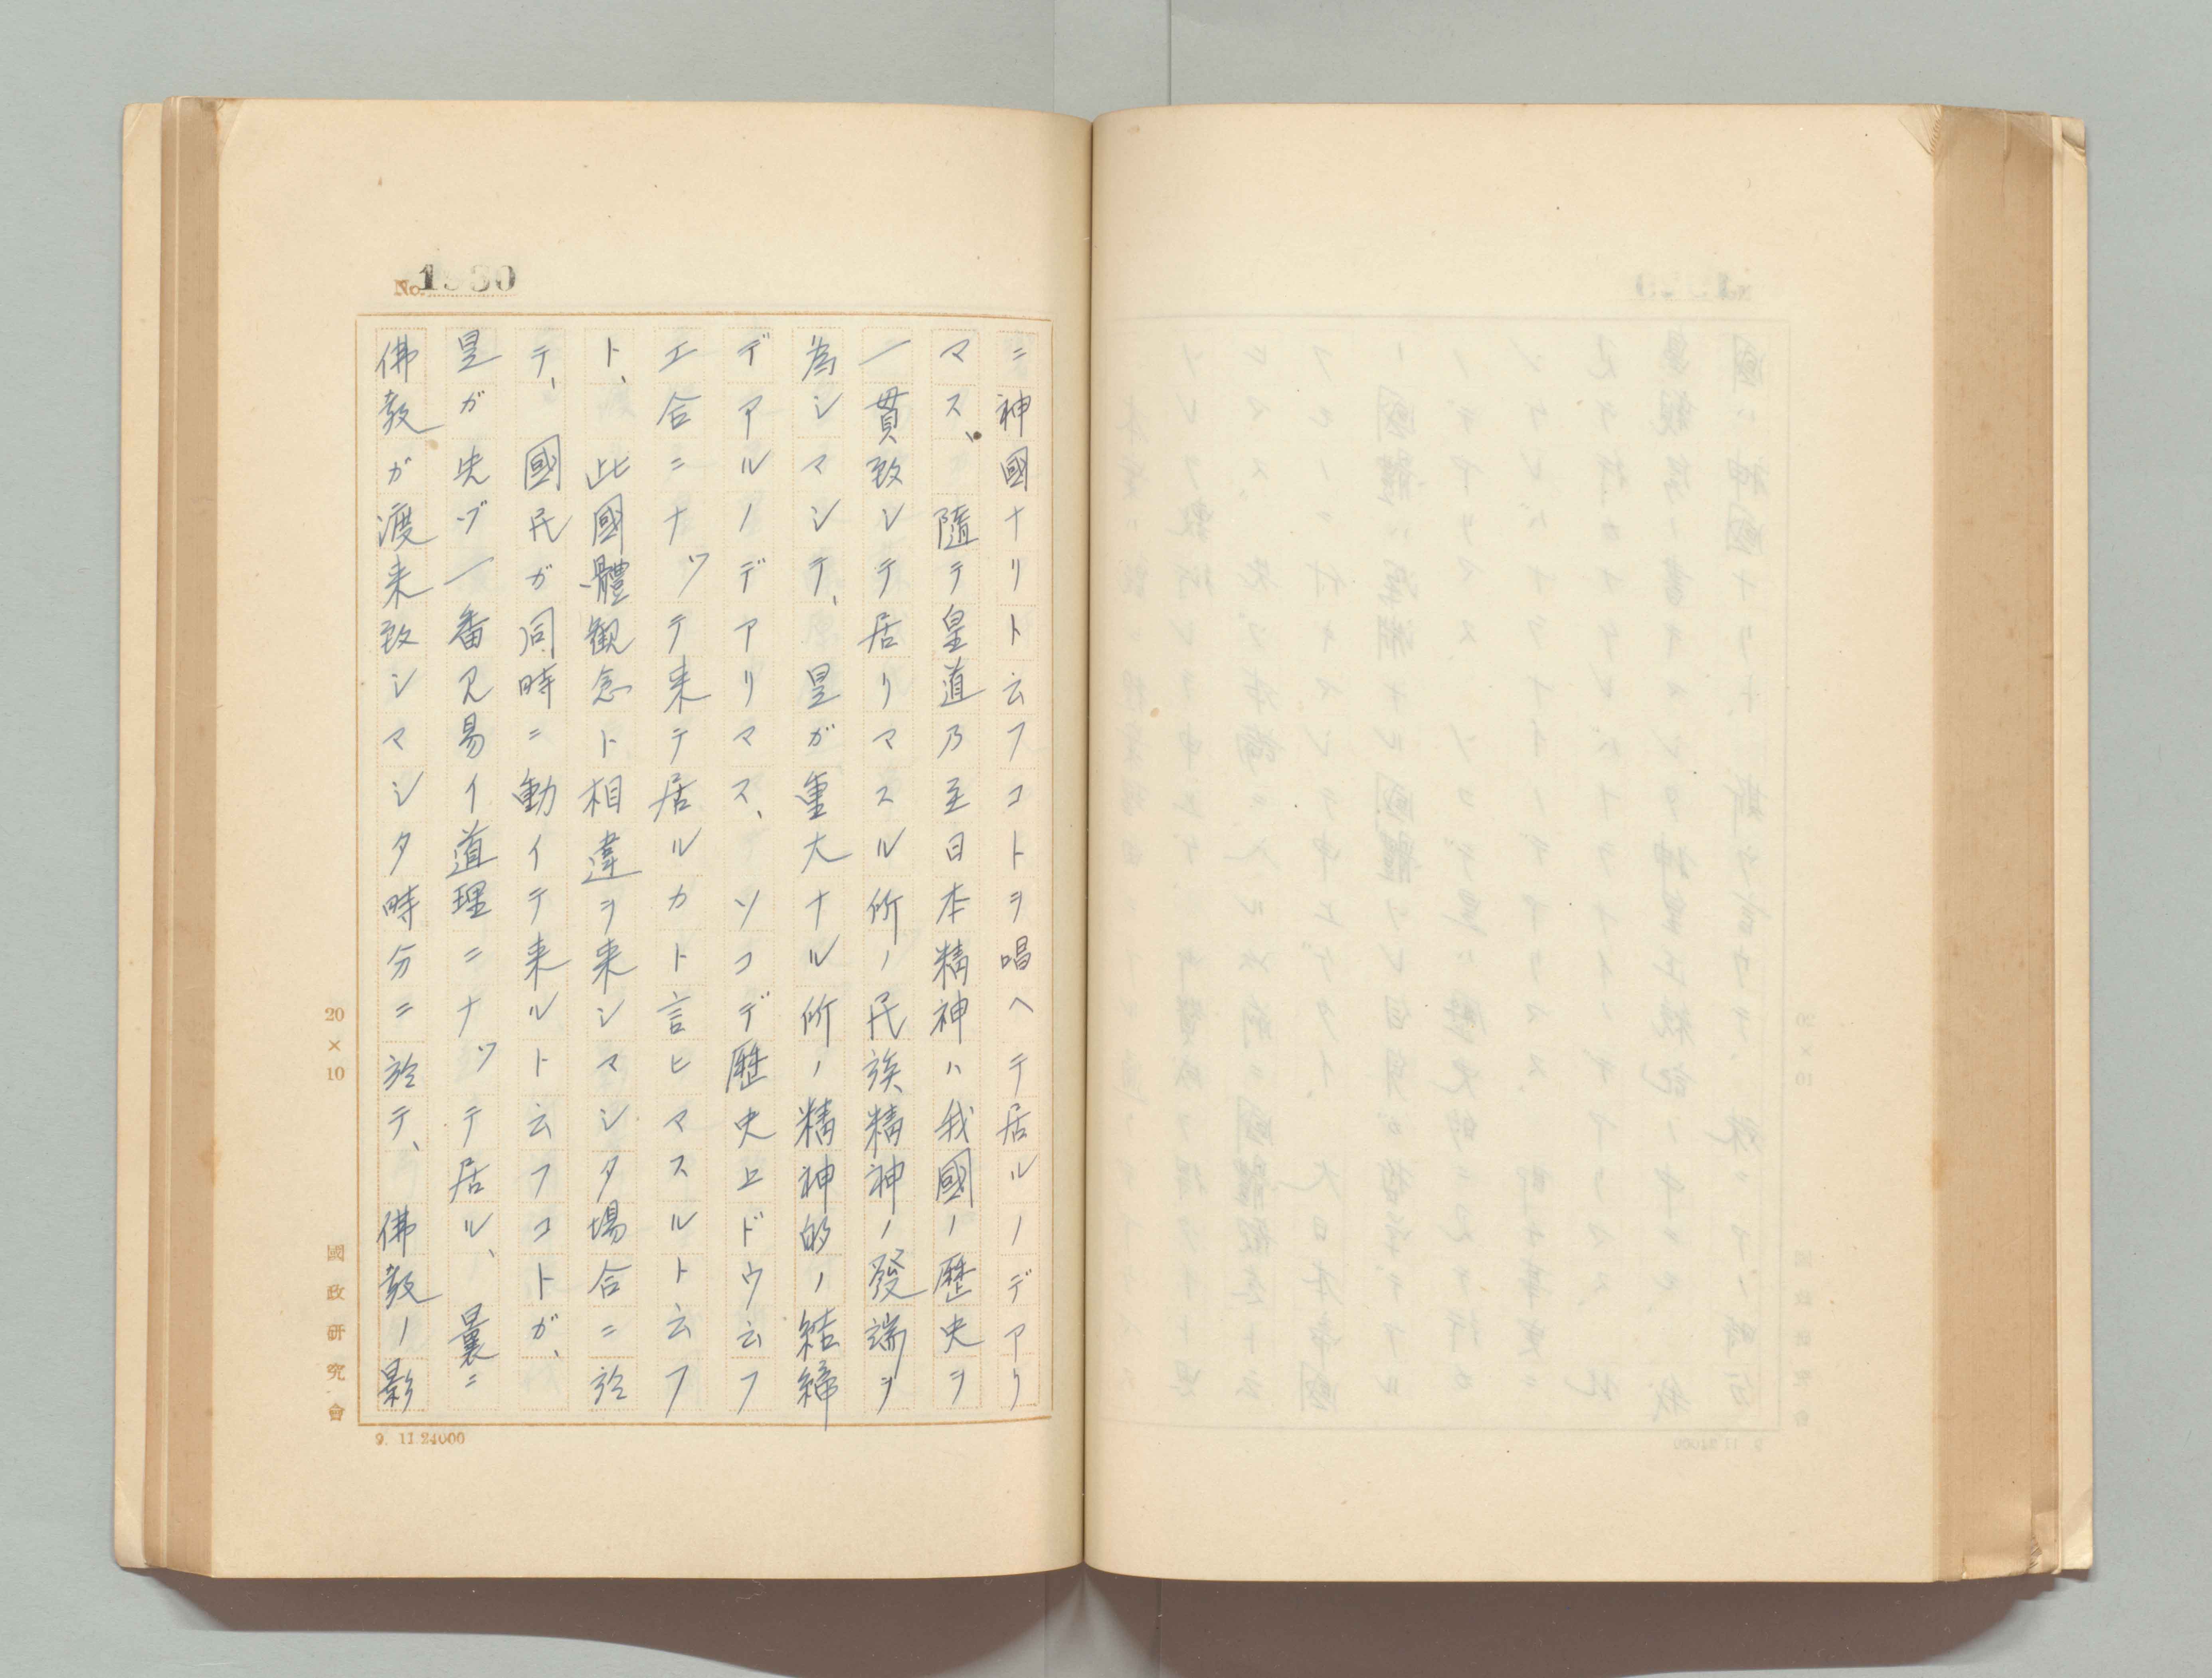 No. 1930
ニ神國ナリト云フコトヲ唱ヘテ居ルノデアリ
マス、隨テ皇道乃至日本精神ハ我國ノ歴史ヲ
一貫致シテ居リマスル所ノ民族精神ノ發端ヲ
為シマシテ、是ガ重大ナル所ノ精神的ノ結締
デアルノデアリマス、ソコデ歴史上ドウ云フ
エ合ニナツテ来テ居ルカト言ヒマスルト云フ
ト、此國體観念ト相違ヲ来シマシタ場合ニ於
テ、國民ガ同時ニ動イテ来ルト云フコトガ、
是ガ先ヅ一番見易イ道理ニナツテ居ル、曩ニ
佛教ガ渡来致シマシタ時分ニ於テ、佛教ノ影
20×10
國政研究會
9. 11.24000